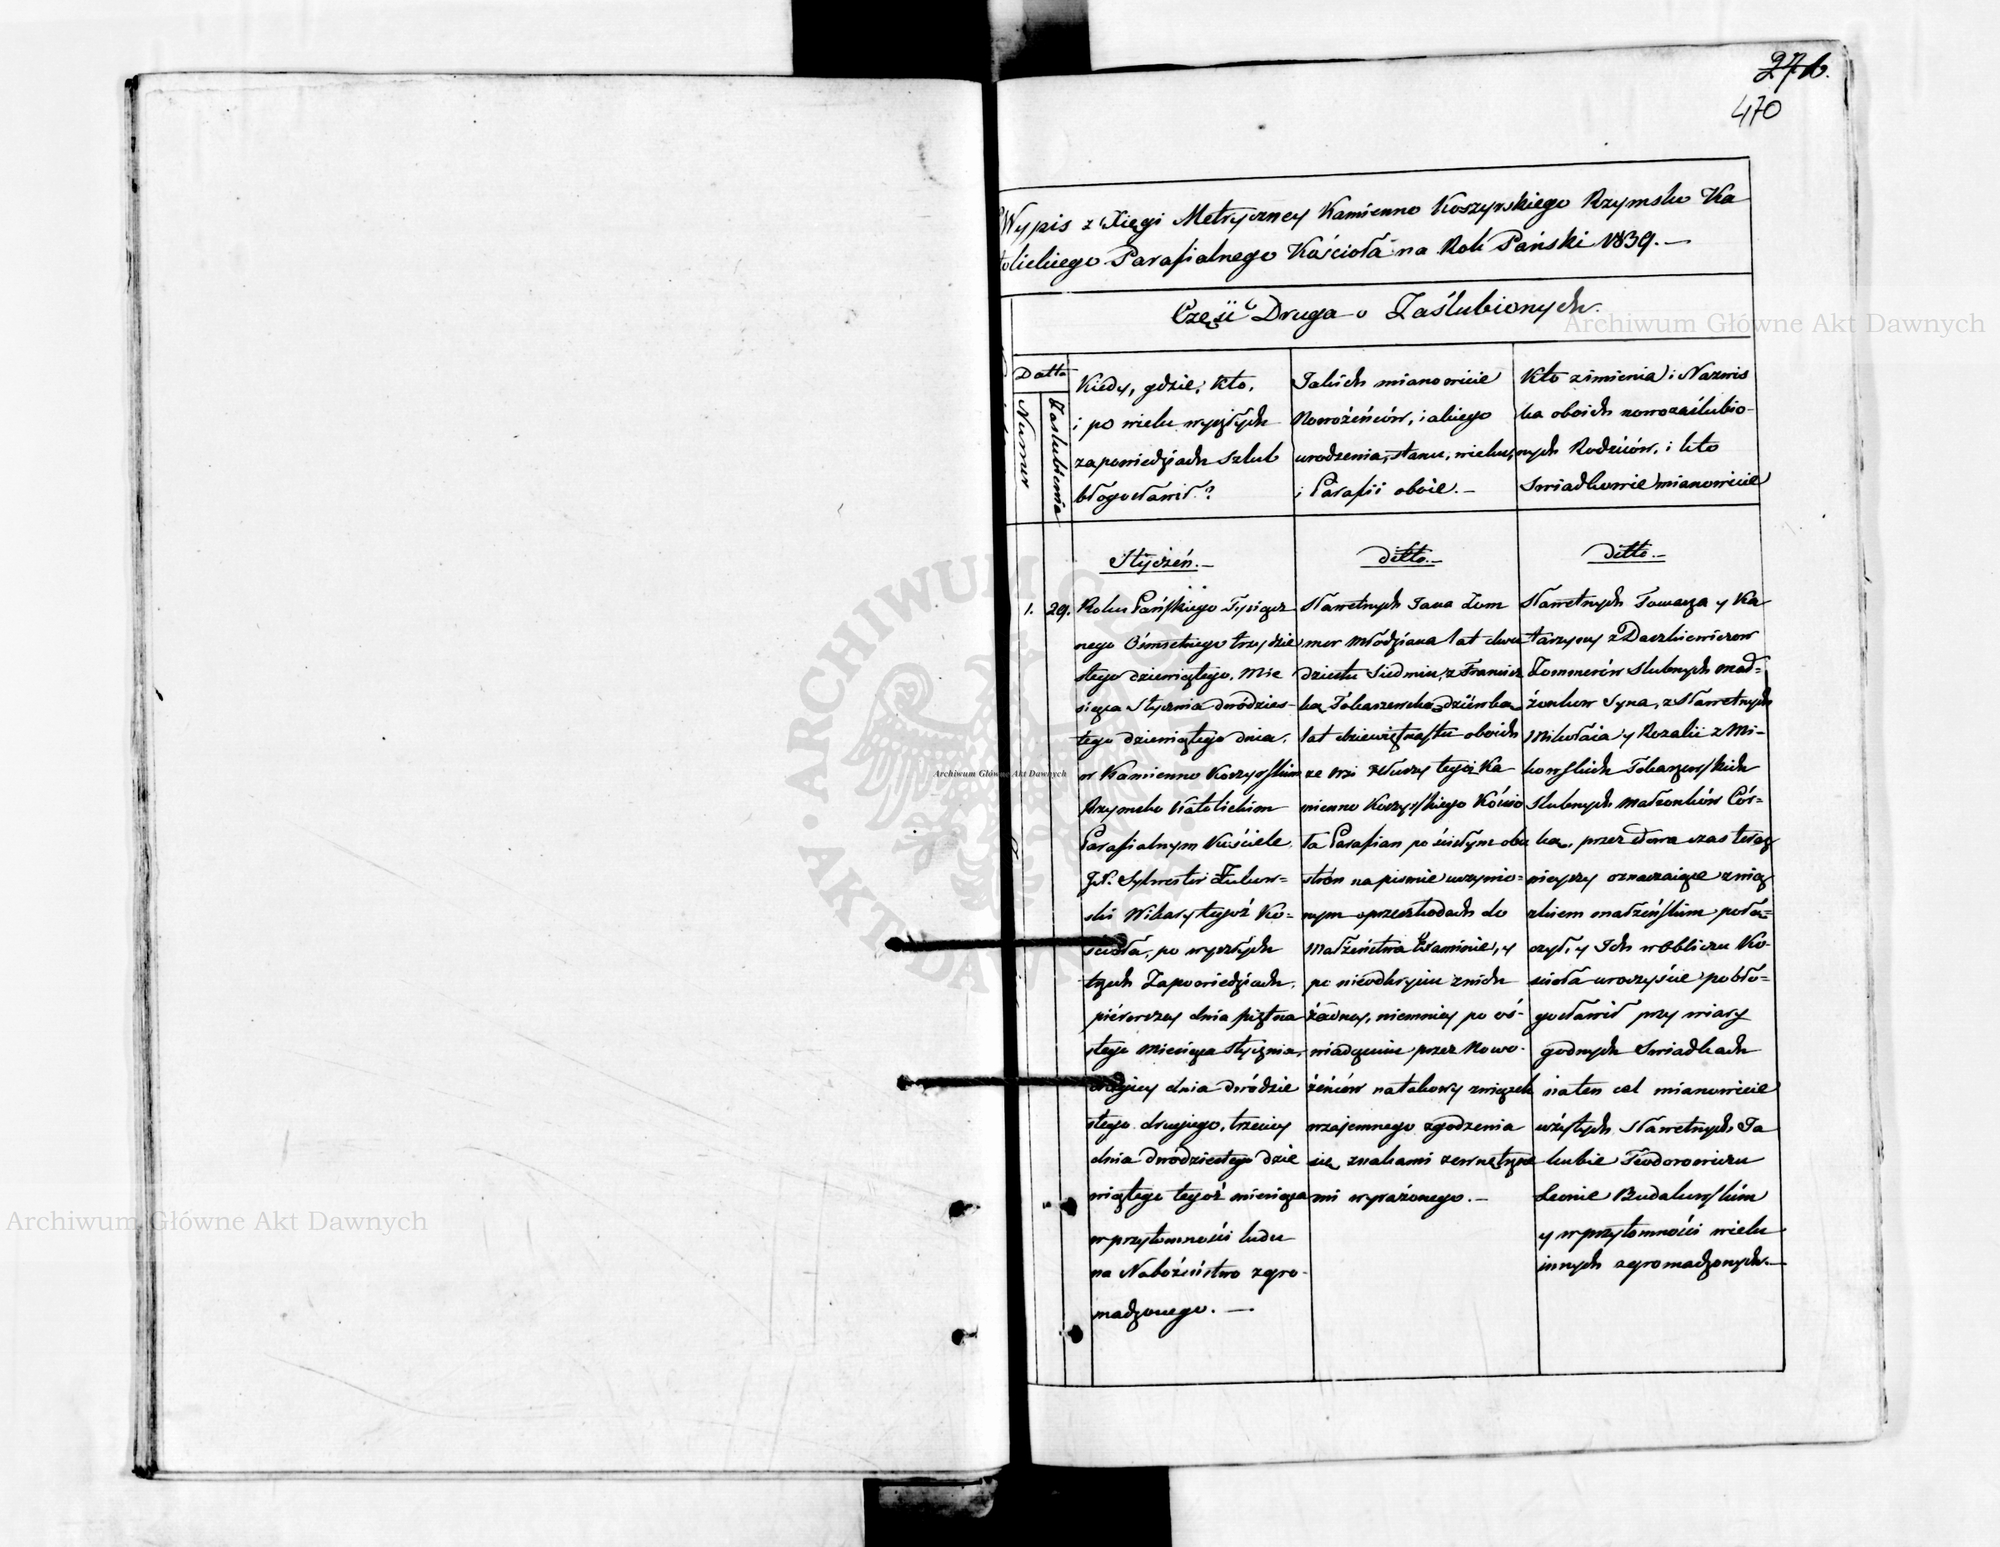 27b.
470
Wypis z Xięgi Metryczney Kamienno Koszyrskiego Rzymsko Ka
tolickiego Parafialnego Kościoła na Rok Pański 1839. —
Część Druga o Zaślubionych.
Datta
Numer
Zaslubienia
Kiedy, gdzie, kto,
i po wielu wyszłych
zapowiedziach szlub
błogosławił?
Jakich mianowicie
Nowożeńców, iakiego
urodzenia, stanu, wieku,
i Parafii oboie. —
Kto z imienia i Nazwis
ka oboich nowozaślubio-
nych Rodziców, i kto
Swiadkowie mianowicie
Styczeń. —
1. 29.
Roku Pańskiego Tysiącz
nego Ośmsetnego trzydzie
stego dziewiątego, Mie
siąca Stycznia dwódzies-
tego dziewiątego dnia,
w Kamienno Koszyrskim
Rzymsko Katolickim
Parafialnym Kościele,
JX. Sylwester Żukow-
ski Wikary tegoż Ko-
scioła, po wyszłych
trzech Zapowiedziach,
piérwszey dnia piętna
stego Miesiąca Stycznia,
drugiey dnia dwódzie
stego drugiego, trzeciey
dnia dwódziestego dzie
wiątego tegoż miesiąca
w przytomności ludu
na Nabożeństwo zgro-
madzonego. —
ditto. —
Sławetnych Jana Zom
mer Młodziana lat dwu
dziestu Siedmiu, z Francisz
ką Tokarzewską dziéwką
lat dziewiętnastu oboich
ze wsi tegoż Ka
mienno Koszyrskiego Kościo
ła Parafian po ścisłym obu
stron na pismie uczynio-
nym o przeszkodach do
Małżeństwa Examinie, y
po nieodkryciu z nich
żadney, niemniey po oś-
wiadczeniu przez Nowo-
żeńców na takowy związek
wzajemnego zgodzenia
się znakami zewnętrzne
mi wyrażonego. —
ditto. —
Sławetnych Tomasza y Ka
tarzyny z Daszkiewiczow
Zommerów Slubnych mał-
żonkow Syna, z Sławetnych
Mikołaia y Rozalii z Mi-
kowskich Tokarzewskich
Slubnych Małżonków Cór-
ką, przez słowa czas teraz
nieyszy oznaczaiące związ
zkiem małżeńskim połą-
czył, y Ich w Obliczu Ko-
scioła uroczyście pobło-
gosławił przy wiary
godnych Swiadkach
na ten cel mianowicie
użytych Sławetnych, Ja
kubie Teodorowiczu
Leonie Budakowskim
y w przytomności wielu
innych zgromadzonych. —